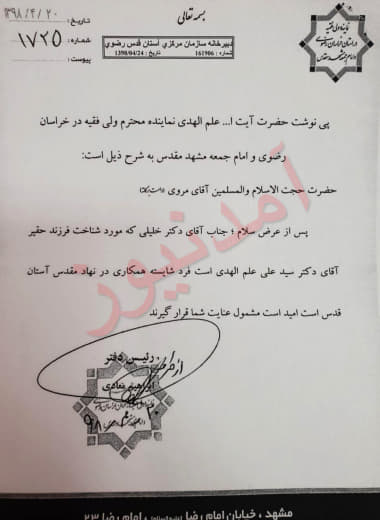 بسمه تعالی
نماینده ولی فقیه
در استان خراسان رضوی
و امام جمعه مشهد مقدس
تاریخ: ۱۳۹۸/۴/۲۰
شماره: ۱۷۲۵
پیوست:
دبیرخانه سازمان مرکزی آستان قدس رضوی
شماره : 161906 تاریخ : 1398/04/24
پی نوشت حضرت آیت ا... علم الهدی نماینده محترم ولی فقیه در خراسان
رضوی و امام جمعه مشهد مقدس به شرح ذیل است:
حضرت حجت الاسلام والمسلمین آقای مروی
پس از عرض سلام ؛ جناب آقای دکتر خلیلی که مورد شناخت فرزند حقیر
آقای دکتر سید علی علم الهدی است فرد شایسته همکاری در نهاد مقدس آستان
قدس است امید است مشمول عنایت شما قرار گیرند
آمدنیوز
رئیس دفتر
از طرف
ابراهیم
۹۸
مشهد ، خیابان امام رضا ، امام رضا ۲۳